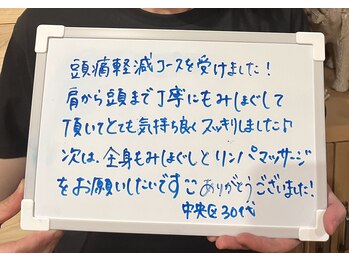 頭痛軽減コースを受けました！
肩から頭まで丁寧にもみほぐして
頂いてとても気持ち良くスッキリしました♪
次は、全身もみほぐしとリンパマッサージ
をお願いしたいです ありがとうございました！
中央区30代